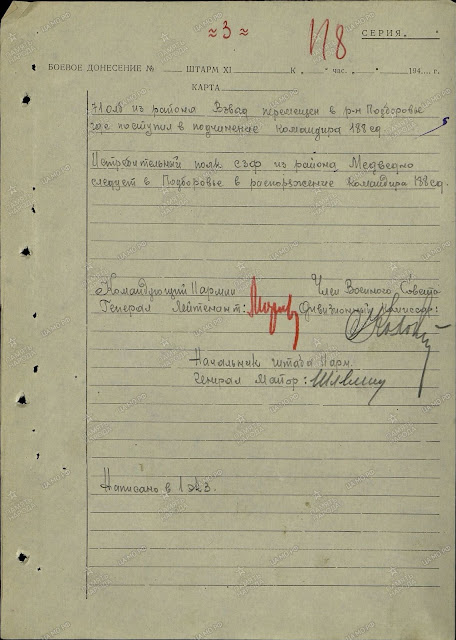 ≈ 3 ≈
118
СЕРИЯ.
БОЕВОЕ ДОНЕСЕНИЕ № ШТАРМ XI К час. 194 г.
КАРТА
71 олб из района Взвад перемещен в р-н Подборовье
где поступил в подчинение командира 188 сд.
Истребительный полк СЗФ из района Медведно
следует в Подборовье в распоряжение командира 188 сд.
Командующий 11 армии Член Военного Совета
Генерал Лейтенант: Дивизионный комиссар:
Начальник штаба 11 арм.
Генерал Майор:
Написано в 1 экз.